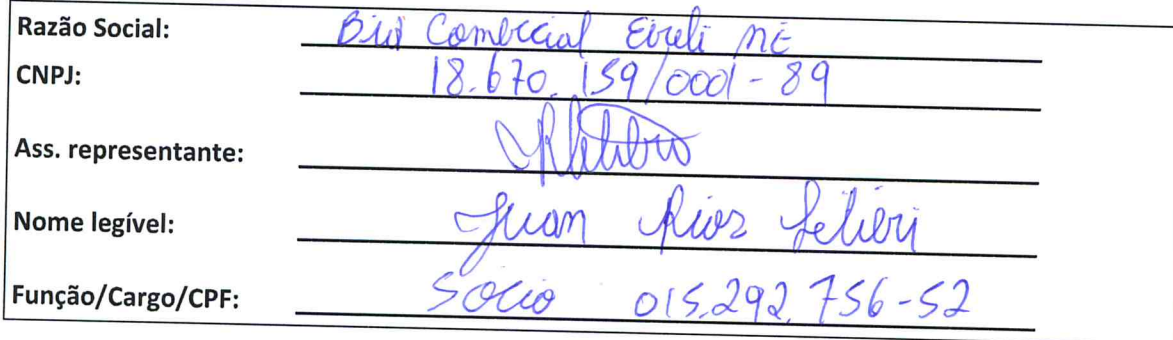 Razão Social: Comercial Eireli ME
CNPJ: 18.670.159/0001-89
Ass. representante:
Nome legível: Juan Rios
Função/Cargo/CPF: Sócio 015.292.756-52